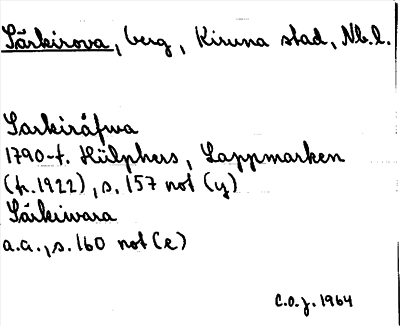 Särkirova, berg, Kiruna stad, Nb.l.
Sarkiråfwa
1790-t. Hülphers, Lappmarken
(tr.1922), s. 157 not (y)
Särkiwara
a.a., s. 160 not (e)
C.O.J. 1964